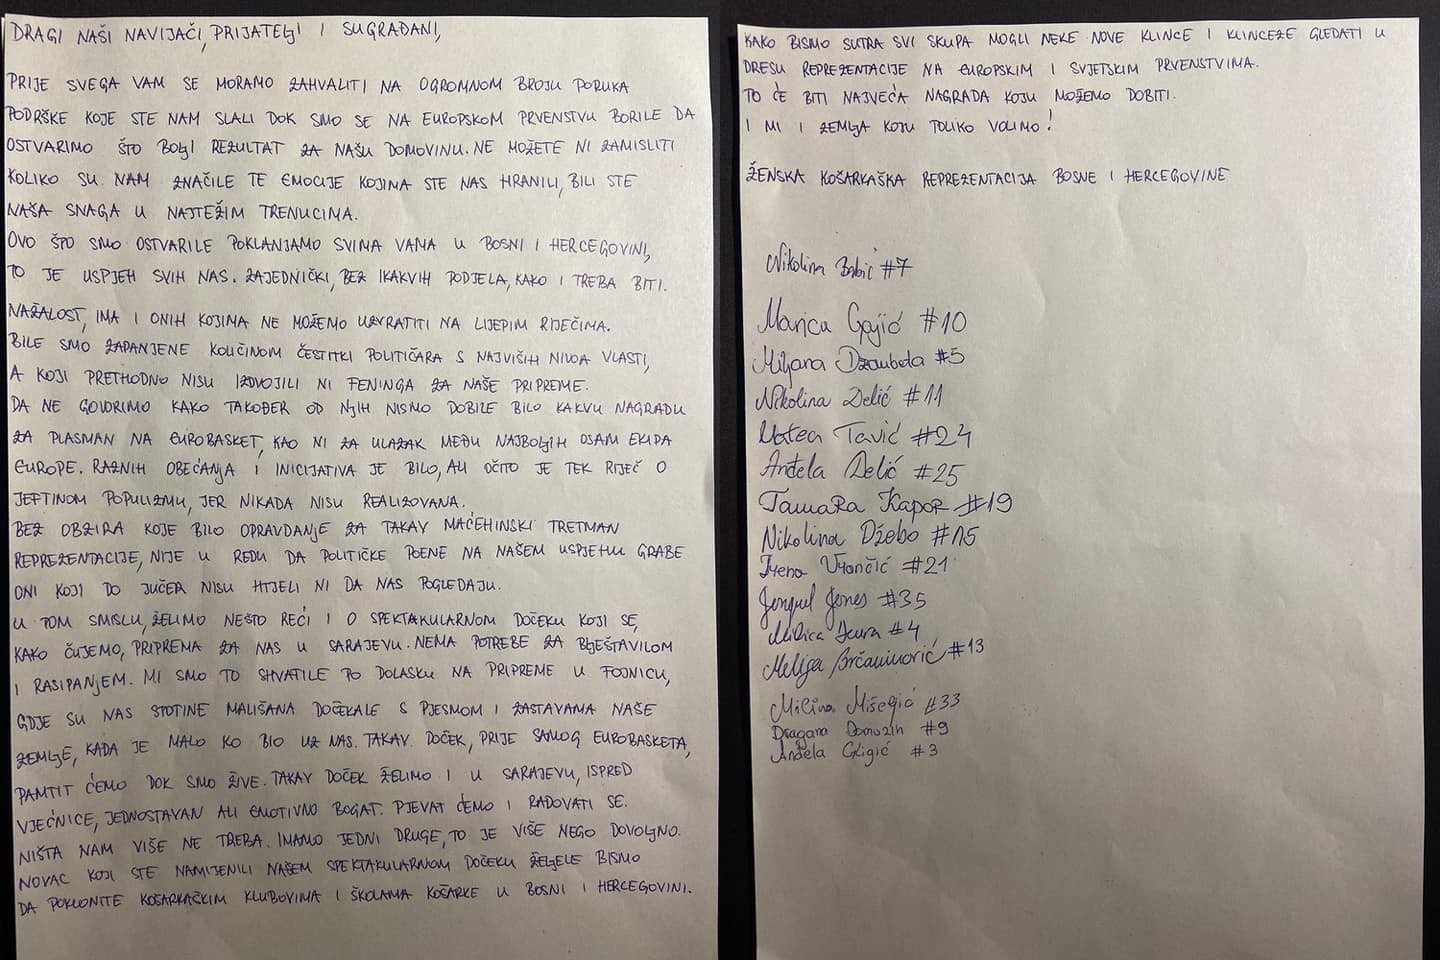 DRAGI NAŠI NAVIJAČI, PRIJATELJI I SUGRAĐANI,
PRIJE SVEGA VAM SE MORAMO ZAHVALITI NA OGROMNOM BROJU PORUKA
PODRŠKE KOJE STE NAM SLALI DOK SMO SE NA EUROPSKOM PRVENSTVU BORILE DA
OSTVARIMO ŠTO BOLJI REZULTAT ZA NAŠU DOMOVINU. NE MOŽETE NI ZAMISLITI
KOLIKO SU NAM ZNAČILE TE EMOCIJE KOJIMA STE NAS HRANILI, BILI STE
NAŠA SNAGA U NAJTEŽIM TRENUCIMA.
OVO ŠTO SMO OSTVARILE POKLANJAMO SVIMA VAMA U BOSNI I HERCEGOVINI,
TO JE USPJEH SVIH NAS. ZAJEDNIČKI, BEZ IKAKVIH PODJELA, KAKO I TREBA BITI.
NAŽALOST, IMA I ONIH KOJIMA NE MOŽEMO UZVRATITI NA LIJEPIM RIJEČIMA.
BILE SMO ZAPANJENE KOLIČINOM ČESTITKI POLITIČARA S NAJVIŠIH NIVOA VLASTI,
A KOJI PRETHODNO NISU IZDVOJILI NI FENINGA ZA NAŠE PRIPREME.
DA NE GOVORIMO KAKO TAKOĐER OD NJIH NISMO DOBILE BILO KAKVU NAGRADU
ZA PLASMAN NA EUROBASKET, KAO NI ZA ULAZAK MEĐU NAJBOLJIH OSAM EKIPA
EUROPE. RAZNIH OBEĆANJA I INICIJATIVA JE BILO, ALI OČITO JE TEK RIJEČ O
JEFTINOM POPULIZMU, JER NIKADA NISU REALIZOVANA.
BEZ OBZIRA KOJE BILO OPRAVDANJE ZA TAKAV MAĆEHINSKI TRETMAN
REPREZENTACIJE, NIJE U REDU DA POLITIČKE POENE NA NAŠEM USPJEHU GRABE
ONI KOJI DO JUČER NISU HTJELI NI DA NAS POGLEDAJU.
U TOM SMISLU, ŽELIMO NEŠTO REĆI I O SPEKTAKULARNOM DOČEKU KOJI SE,
KAKO ČUJEMO, PRIPREMA ZA NAS U SARAJEVU. NEMA POTREBE ZA BLJEŠTAVILOM
I RASIPANJEM. MI SMO TO SHVATILE PO DOLASKU NA PRIPREME U FOJNICU,
GDJE SU NAS STOTINE MALIŠANA DOČEKALE S PJESMOM I ZASTAVAMA NAŠE
ZEMLJE, KADA JE MALO KO BIO UZ NAS. TAKAV DOČEK, PRIJE SAMOG EUROBASKETA,
PAMTIT ĆEMO DOK SMO ŽIVE. TAKAV DOČEK ŽELIMO I U SARAJEVU, ISPRED
VJEĆNICE, JEDNOSTAVAN ALI EMOTIVNO BOGAT. PJEVAT ĆEMO I RADOVATI SE.
NIŠTA NAM VIŠE NE TREBA. IMAMO JEDNI DRUGE, TO JE VIŠE NEGO DOVOLJNO.
NOVAC KOJI STE NAMIJENILI NAŠEM SPEKTAKULARNOM DOČEKU ŽELJELE BISMO
DA POKLONITE KOŠARKAŠKIM KLUBOVIMA I ŠKOLAMA KOŠARKE U BOSNI I HERCEGOVINI.
KAKO BISMO SUTRA SVI SKUPA MOGLI NEKE NOVE KLINCE I KLINCEZE GLEDATI U
DRESU REPREZENTACIJE NA EUROPSKIM I SVJETSKIM PRVENSTVIMA.
TO ĆE BITI NAJVEĆA NAGRADA KOJU MOŽEMO DOBITI.
I MI I ZEMLJA KOJU TOLIKO VOLIMO!
ŽENSKA KOŠARKAŠKA REPREZENTACIJA BOSNE I HERCEGOVINE
Nikolina Babić #7
Marica Gajić #10
Miljana Džombeta #5
Nikolina Delić #11
Matea Tavić #24
Anđela Delić #25
Tamara Kapor #19
Nikolina Džebo #15
Irena Vrančić #21
Jonquel Jones #35
Milica Deura #4
Melisa Brčaninović #13
Milina Mišeqić #33
Dragana Domuzin #9
Anđela Gligić #3